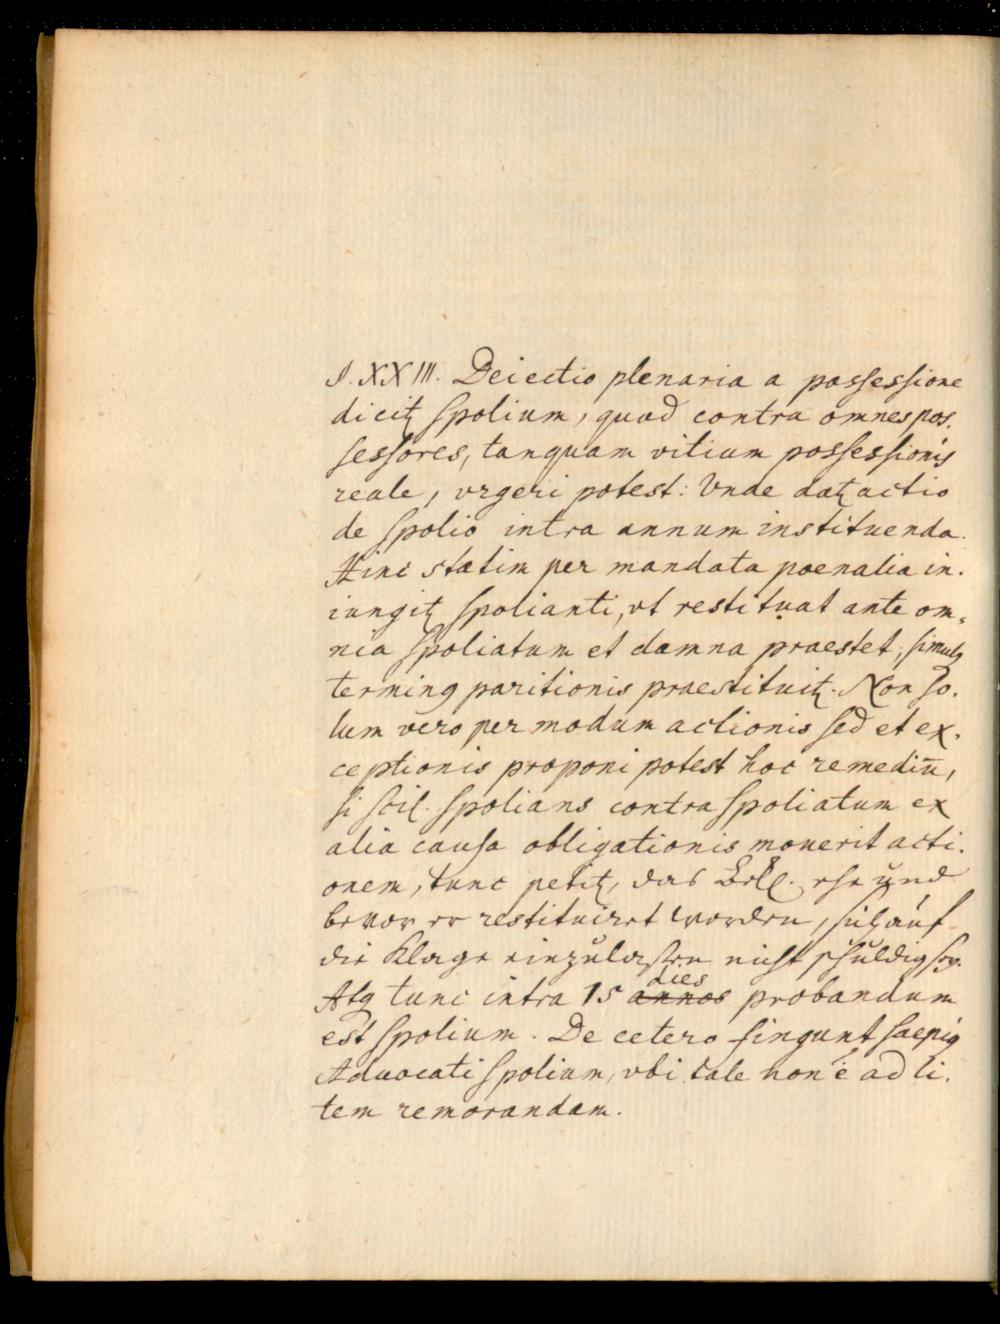 §. XXIII. Deiectio plenaria a possessione
dicitꝫ spolium, quod contra omnes pos-
sessores, tanquam vitium possessionis
reale, vrgeri potest: Vnde datꝫ actio
de spolio intra annum instituenda.
Hinc statim per mandata poenalia in-
iungitꝫ spolianti, vt restituat ante om-
nia spoliatum et damna praestet, simulꝫ
terminꝰ paritionis praestituitꝫ. Non so-
lum vero per modum actionis sed et ex-
ceptionis proponi potest hoc remediū,
si scil. spolians contra spoliatum ex
alia causa obligationis mouerit acti-
onem, tunc petitꝫ, das Bekl. ehe und
bevor er restituiret worden, sich auf
die Klage einzulaßen nicht schuldig sey.
Atqꝫ tunc intra 15 annos dies probandum
est spolium. De cetero fingunt saepiꝰ
Aduocati spolium, vbi tale non ē ad li-
tem remorandam.